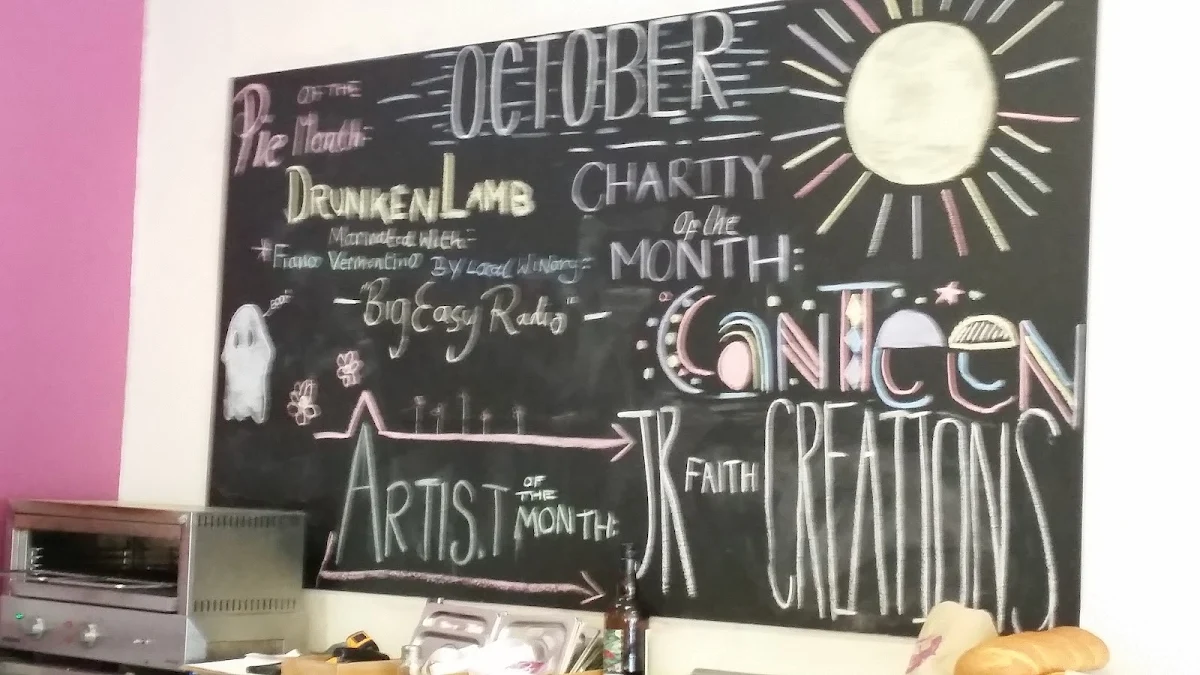 OCTOBER
Pie OF THE Month:
DRUNKEN LAMB
Marinated With:-
* Fiano Vermentino BY Local Winery:-
- "Big Easy Radio" -
BOO!
CHARITY
of the
MONTH:
CANTEEN
ARTIST OF THE MONTH:
JK FAITH CREATIONS